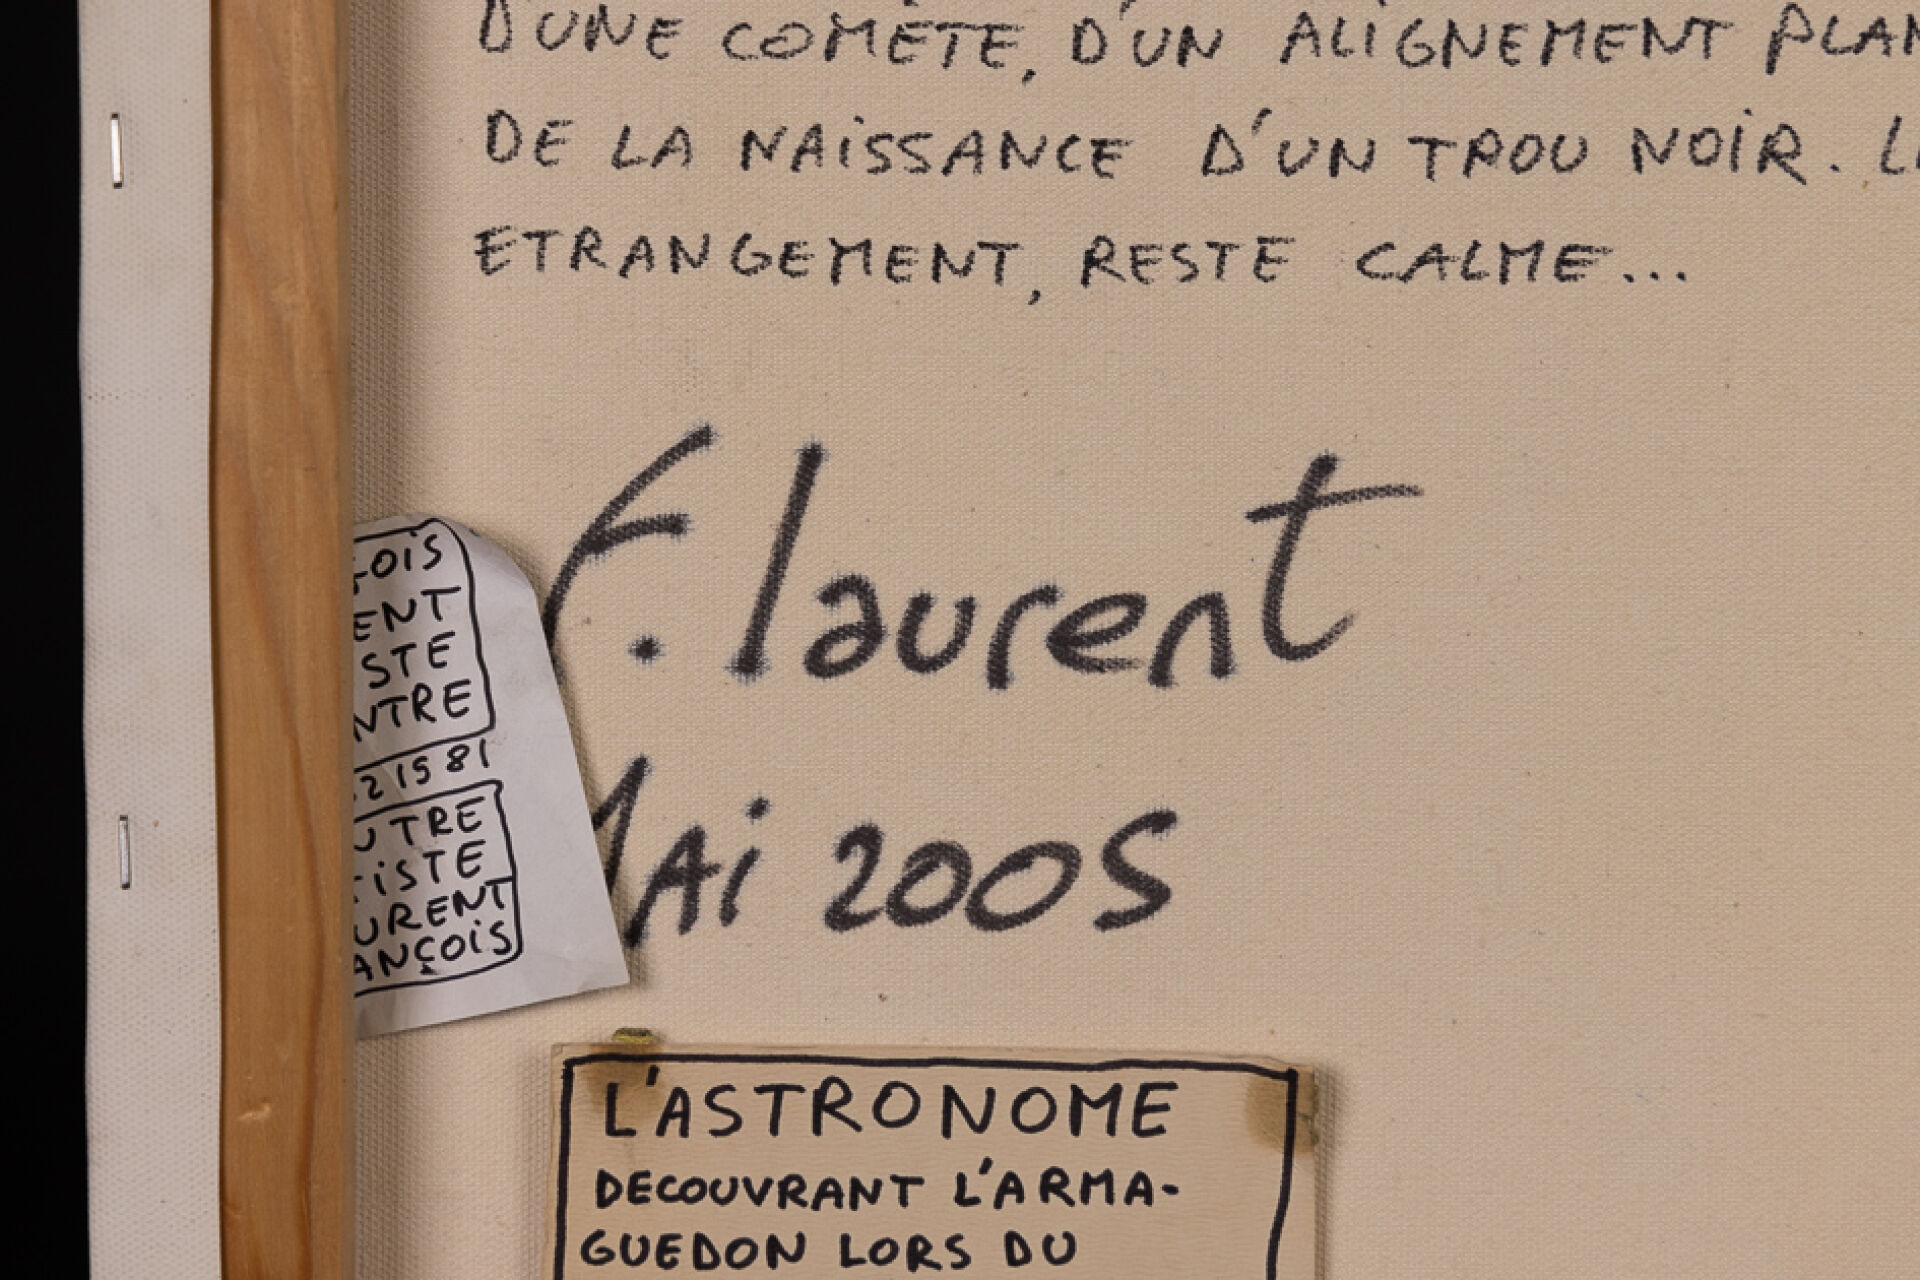 D'UNE COMÈTE, D'UN ALIGNEMENT PLAN
DE LA NAISSANCE D'UN TROU NOIR.
ETRANGEMENT, RESTE CALME...
F. laurent
MAi 2005
ÇOiS
ENT
STE
NTRE
21581
UTRE
TiSTE
URENT
ANÇOiS
L'ASTRONOME
DECOUVRANT L'ARMA-
GUEDON LORS DU